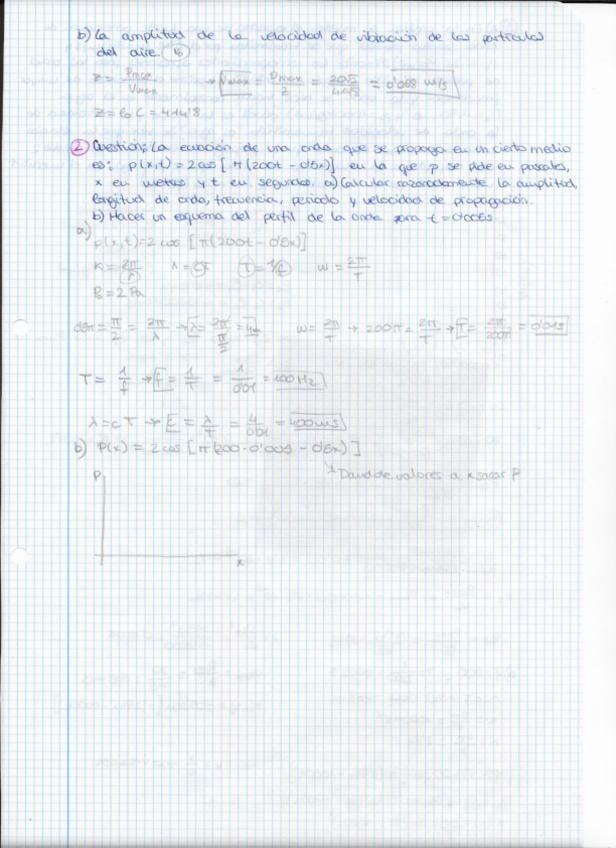 b) La amplitud de la velocidad de vibración de las partículas
del aire.
Z = Pmax / Vmax → Vmax = Pmax / Z = / 414'8 = 0'068 m/s
Z = ρ₀ C = 414'8
2 Cuestión: La ecuación de una onda que se propaga en un cierto medio
es: p(x,t) = 2cos[π(200t - 0'5x)] en la que p se mide en pascales,
x en metros y t en segundos. a) Calcular razonadamente la amplitud,
longitud de onda, frecuencia, periodo y velocidad de propagación.
b) Hacer un esquema del perfil de la onda para t = 0'005s
a)
p(x,t) = 2 cos [π(200t - 0'5x)]
K = 2π/λ λ = cT T = 1/f ω = 2π/T
P = 2 Pa
0'5π = π/2 = 2π/λ → λ = 2π/(π/2) = 4m ω = 2π/T → 200π = 2π/T → T = 2π/200π = 0'01s
T = 1/f → f = 1/T = 1/0'01 = 100Hz
λ = c T → C = λ/T = 4/0'01 = 400 m/s
b) P(x) = 2 cos [π(200·0'005 - 0'5x)]
P
* Dando valores a x sacar P
x